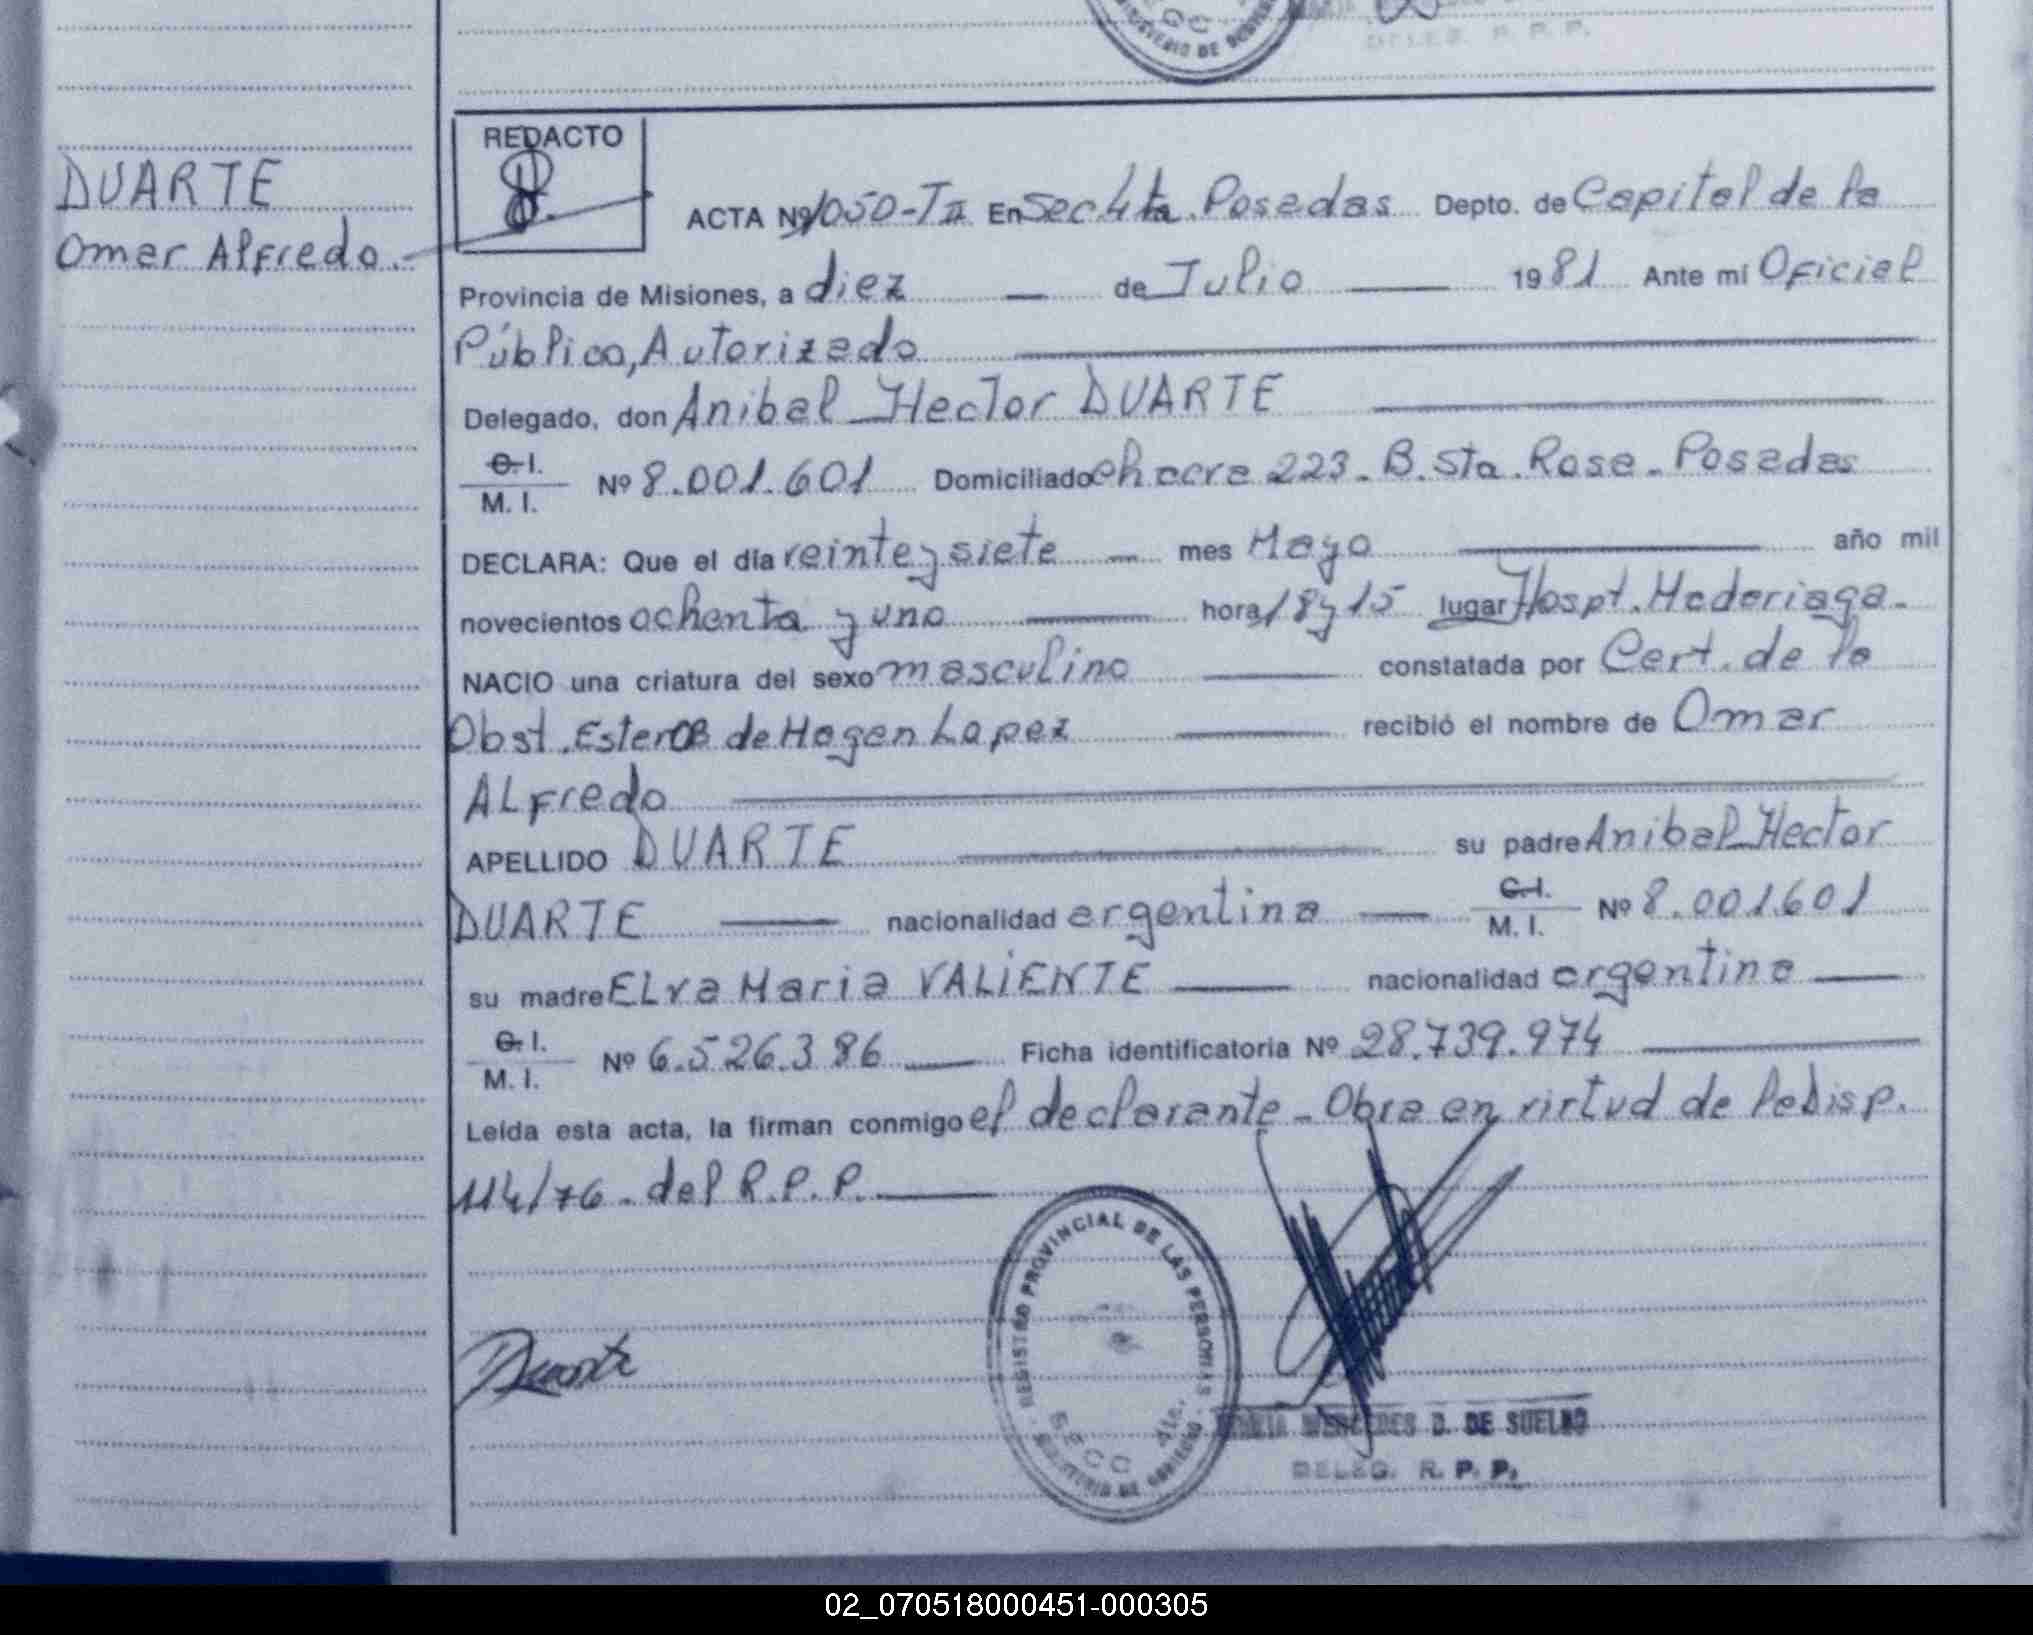 MINISTERIO DE GOBIERNO
DELEG. R. P. P.
DUARTE
Omar Alfredo.
REDACTO
ACTA Nº 1050-TII En Sec 4ta. Posadas Depto. de Capital de la
Provincia de Misiones, a diez de Julio 1981 Ante mi Oficial
Público, Autorizado
Delegado, don Anibal Hector DUARTE
C. I.
M. I. Nº 8.001.601 Domiciliado chacra 223. B. Sta. Rosa. Posadas
DECLARA: Que el día veinte y siete mes Mayo año mil
novecientos ochenta y uno hora 18 y 15 lugar Hospt. Madariaga.
NACIO una criatura del sexo masculino constatada por Cert. de la
Obst. de Hagen Lopez recibió el nombre de Omar
ALFredo
APELLIDO DUARTE su padre Anibal Hector
DUARTE nacionalidad argentina C. I. M. I. Nº 8.001.601
su madre ELva Maria VALiENTE nacionalidad argentina
C. I.
M. I. Nº 6.526.386 Ficha identificatoria Nº 28.739.974
Leída esta acta, la firman conmigo el declarante - Obra en virtud de la Disp.
114/76. del R.P.P.
REGISTRO PROVINCIAL DE LAS PERSONAS
SECC 4ta.
MINISTERIO DE GOBIERNO
Duarte
MARIA MERCEDES D. DE SUELDO
DELEG. R. P. P.
02_070518000451-000305